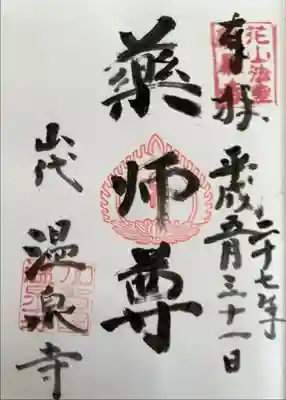 花山法皇
奉拝
平成二十七年
五月三十一日
薬師尊
山代
温泉寺